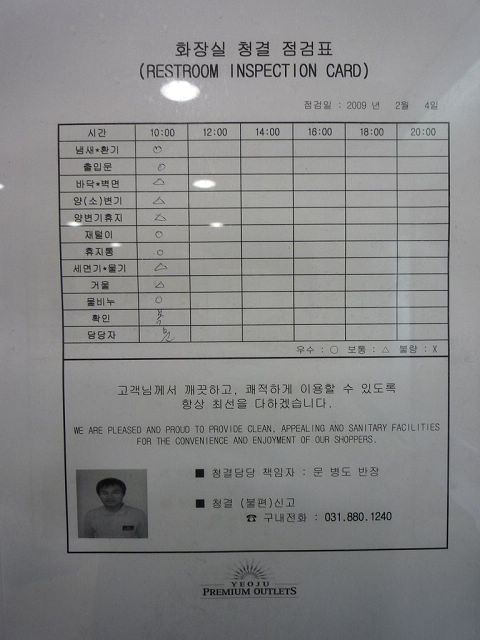 화장실 청결 점검표
(RESTROOM INSPECTION CARD)
점검일 : 2009 년 2월 4일
시간 10:00 12:00 14:00 16:00 18:00 20:00
냄새*환기 ○
출입문 ○
바닥*벽면 △
양(소)변기 △
양변기휴지 △
재털이 ○
휴지통 ○
세면기*물기 △
거울 △
물비누 ○
확인
담당자
우수 : ○ 보통 : △ 불량 : X
고객님께서 깨끗하고, 쾌적하게 이용할 수 있도록
항상 최선을 다하겠습니다.
WE ARE PLEASED AND PROUD TO PROVIDE CLEAN, APPEALING AND SANITARY FACILITIES
FOR THE CONVENIENCE AND ENJOYMENT OF OUR SHOPPERS.
■ 청결담당 책임자 : 문 병도 반장
■ 청결 (불편)신고
☎ 구내전화 : 031.880.1240
YEOJU
PREMIUM OUTLETS